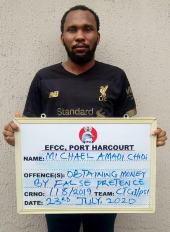 Standard
Chartered
EFCC, PORT HARCOURT
NAME: MICHAEL AMADI CHIDI
OFFENCE(S): OBTAINING MONEY
BY FALSE PRETENCE
CRNO: 118/2019 TEAM:
DATE: 23RD JULY, 2020